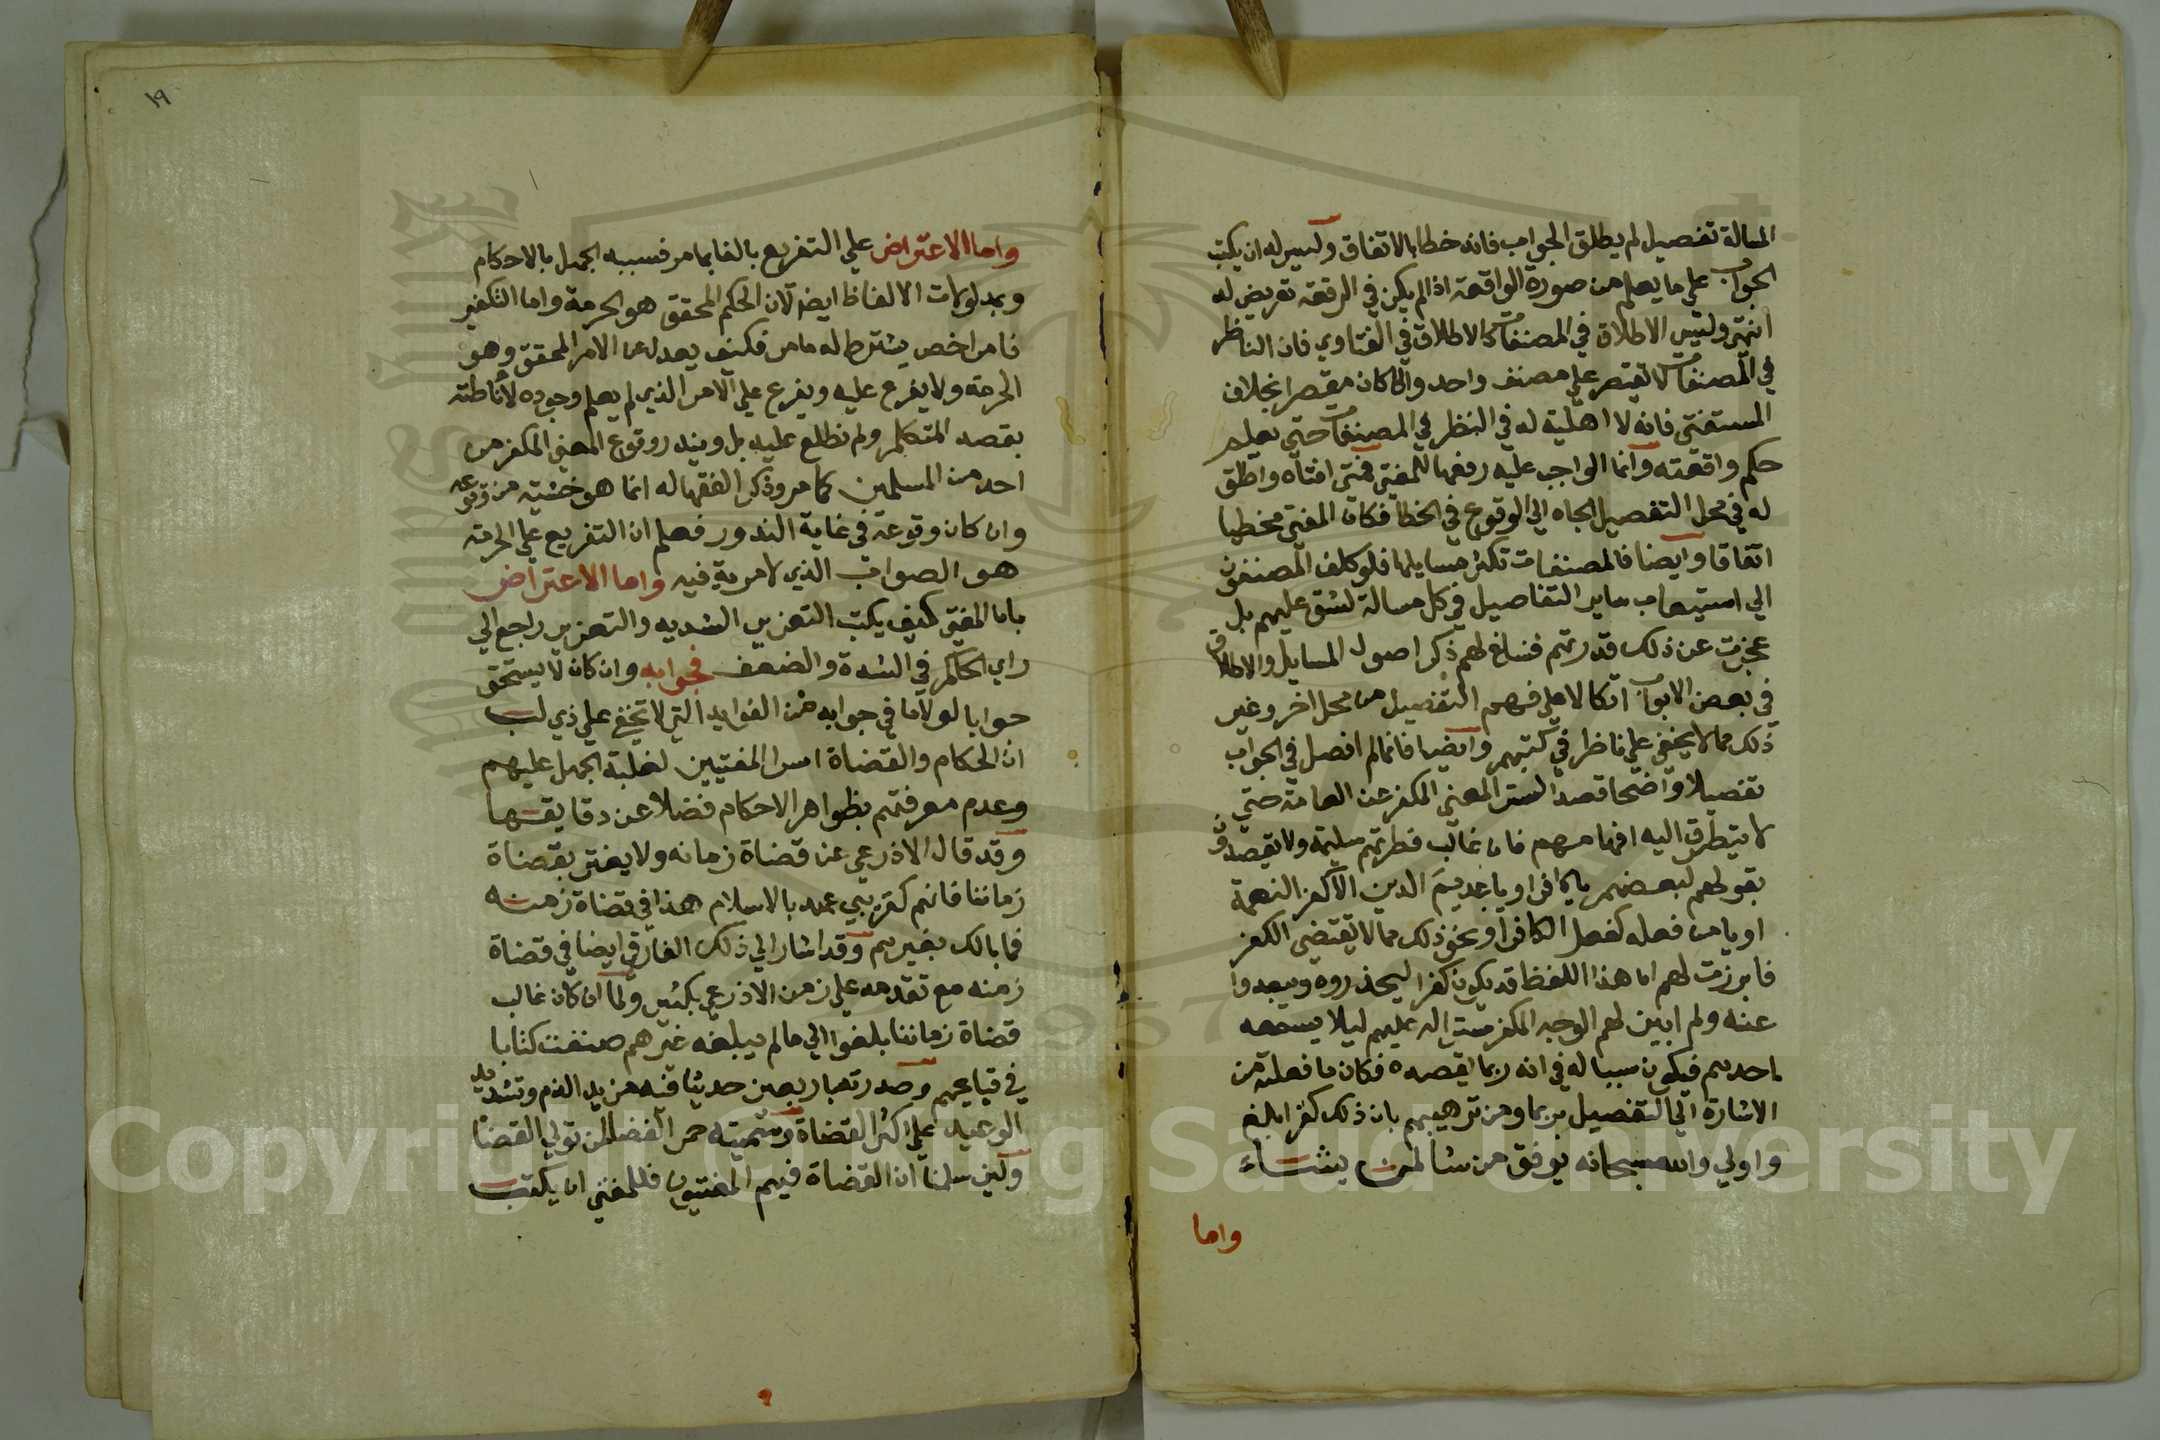 المسالة تفصيل لم يطلق الجواب فانه خطا بالاتفاق وليس له ان يكتب
الجواب علي ما يعلم من صورة الواقعة اذا لم يكن في الرقعة تعريض له
انتهي وليس الاطلاق في المصنفات كالاطلاق في الفتاوي فان الناظر
في المصنفات لا يقتصر علي مصنف واحد والا كان مقصرا بخلاف
المستفتي فانه لا اهلية له في النظر في المصنفات حتي يعلم
حكم واقعته وانما الواجب عليه رفعها للمفتي فمتي افتاه واطلق
له في محل التفصيل الجاه الي الوقوع في الخطا فكان المفتي مخطيا
اتفاقا وايضا فالمصنفات تكثر مسايلها فلو كلف المصنفون
الي استيعاب ساير التفاصيل في كل مسالة لشق عليهم بل
عجزت عن ذلك قدرتهم فساغ لهم ذكر اصول المسايل والاطلاق
في بعض الابواب اتكالا علي فهم التفصيل من محل اخر وغير
ذلك مما لا يخفي علي ناظر في كتبهم وايضا فانما لم افصل في الجواب
تفصيلا واضحا قصدا لستر المعني المكفر عن العامة حتي
لا يتطرق اليه افهامهم فان غالب فطرتهم سليمة ولا يقصدون
بقولهم لبعضهم يا كافر او يا عديم الدين الا كفر النعمة
او يا من فعله كفعل الكافر او نحو ذلك مما لا يقتضي الكفر
فابرزت لهم ان هذا اللفظ قد يكون كفرا ليحذروه ويبعدوا
عنه ولم ابين لهم الوجه المكفر ستراله عليهم ليلا يسمعه
احدهم فيكون سببا له في انه ربما يقصده فكان ما فعلته من
الاشارة الي التفصيل بربما ومن ترهيبهم بان ذلك كفر ابلغ
واولي والله سبحانه يوفق من شا لمن يشاء
واما
١٩
واما الاعتراض علي التفريع بالفا بما مر فسببه الجهل بالاحكام
وبمدلولات الالفاظ ايضا لان الحكم المحقق هو الحرمة واما التكفير
فامر اخص يشترط له ما مر فكيف يعدل عن الامر المحقق وهو
الحرمة ولا يفرع عليه ويفرع علي الامر الذي لم يعلم وجوده لاناطته
بقصد المتكلم ولم نطلع عليه بل ويندر وقوع المعني المكفر من
احد من المسلمين كما مر وذكر الفقها له انما هو خشية من وقوعه
وان كان وقوعه في غاية الندور فعلم ان التفريع علي الحرمة
هو الصواب الذي لا مرية فيه واما الاعتراض
بان المفتي كيف يكتب التعزير الشديد والتعزير راجع الي
راي الحاكم في الشدة والضعف فجوابه وان كان لا يستحق
جوابا لولا ما في جوابه من الفوايد التي لا تخفي علي ذي لب
ان الحكام والقضاة اسرا المفتيين لغلبة الجهل عليهم
وعدم معرفتهم بظواهر الاحكام فضلا عن دقايقها
وقد قال الاذرعي عن قضاة زمانه ولا يغتر بقضاة
زماننا فانهم كقريبي عهد بالاسلام هذا في قضاة زمنه
فما بالك بغيرهم وقد اشار الي ذلك الفارقي ايضا في قضاة
زمنه مع تقدمه علي زمن الاذرعي بكثير ولما ان كان غالب
قضاة زماننا بلغوا الي ما لم يبلغه غيرهم صنفت كتابا
في قبايحهم وصدرته باربعين حديثا فيه مزيد الذم وتشديد
الوعيد علي اكثر القضاة وسميته جمر الغضا لمن تولي القضا
ولين سلمنا ان القضاة فيهم المفتيون فللمفتي ان يكتب